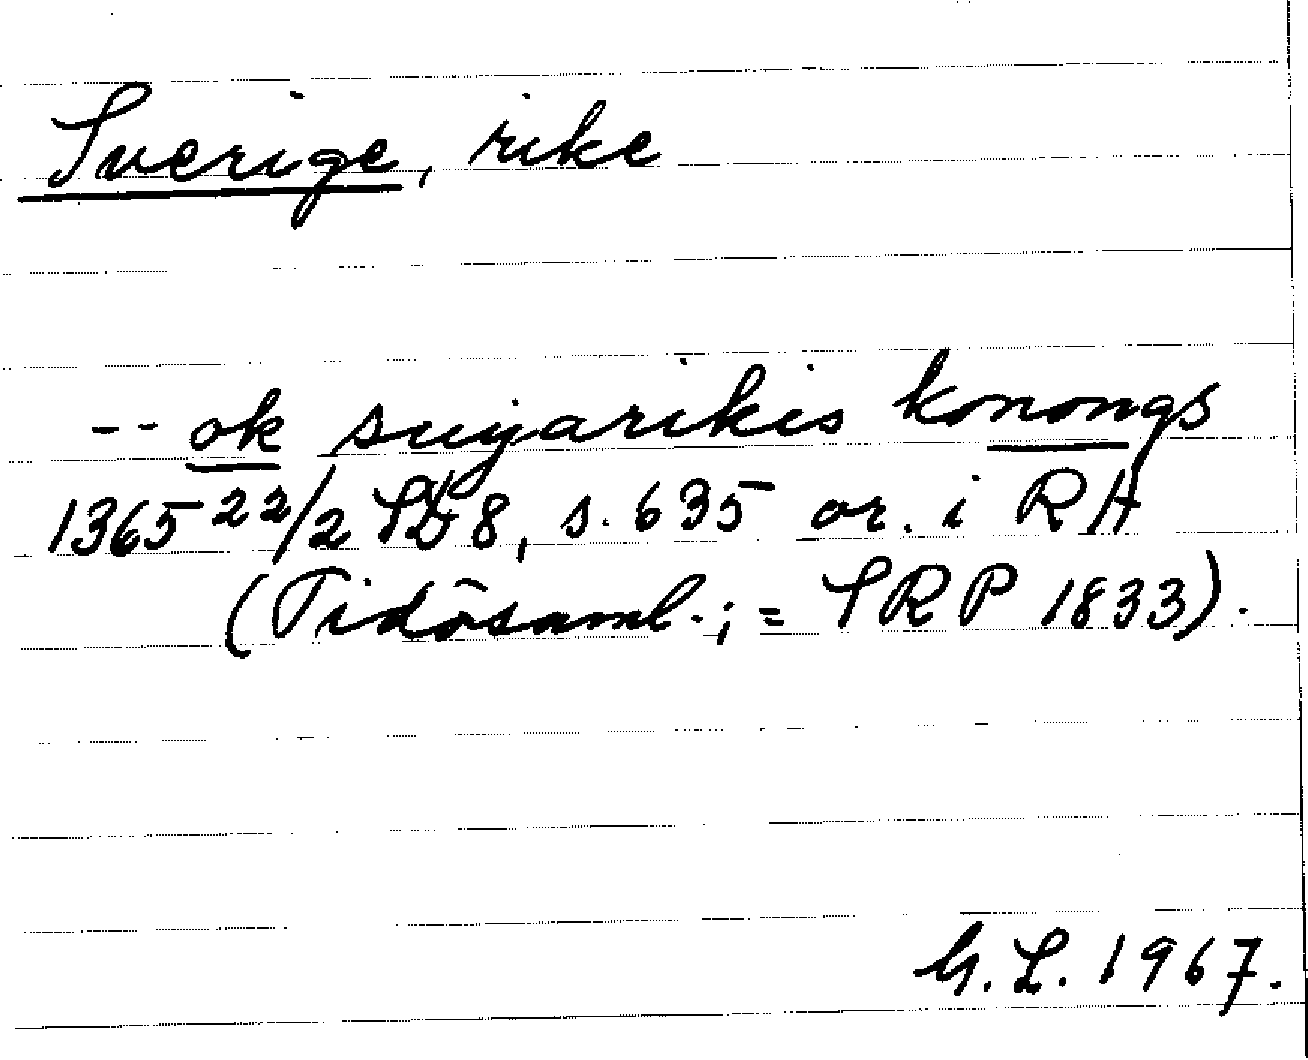 Sverige, rike
-- ok suyarikis konongs
1365 22/2 SD 8, s. 635 or. i RA
(Tidösaml.; = SRP 1833).
G. L. 1967.